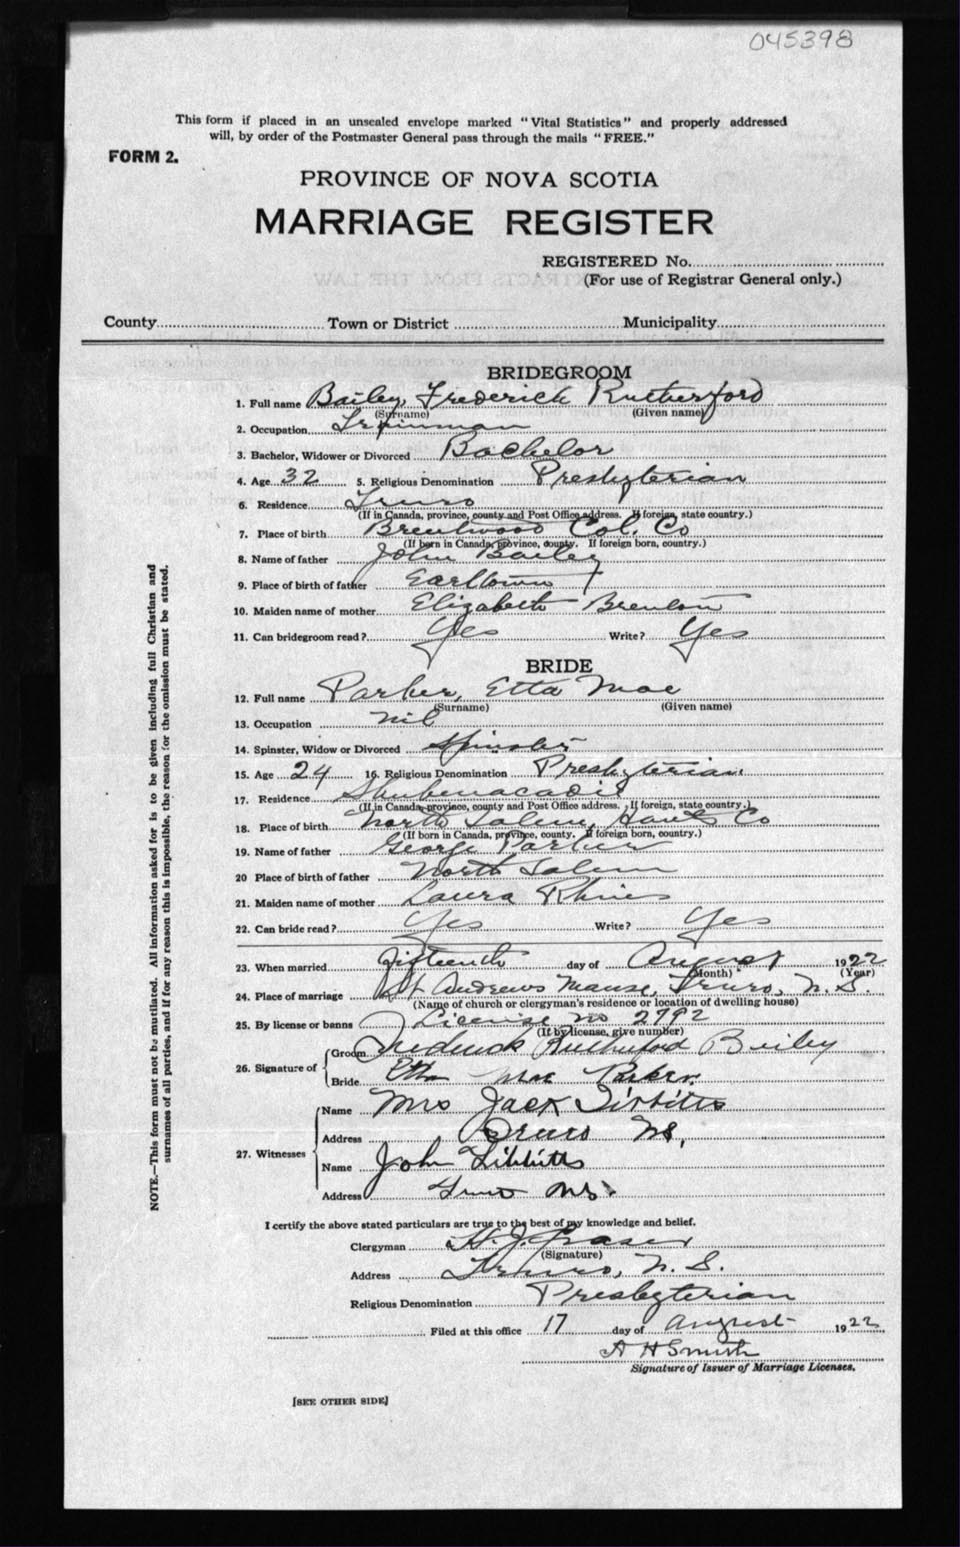 045398
This form if placed in an unsealed envelope marked "Vital Statistics" and properly addressed
will, by order of the Postmaster General pass through the mails "FREE."
FORM 2.
PROVINCE OF NOVA SCOTIA
MARRIAGE REGISTER
REGISTERED No.
(For use of Registrar General only.)
County Town or District Municipality
BRIDEGROOM
1. Full name Bailey, Frederick Rutherford
(Surname) (Given name)
2. Occupation Trainman
3. Bachelor, Widower or Divorced Bachelor
4. Age 32 5. Religious Denomination Presbyterian
6. Residence Truro
(If in Canada, province, county and Post Office address. If foreign, state country.)
7. Place of birth Brentwood Col. Co
(If born in Canada, province, county. If foreign born, country.)
8. Name of father John Bailey
9. Place of birth of father Earltown
10. Maiden name of mother Elizabeth
11. Can bridegroom read? Yes Write? Yes
BRIDE
12. Full name Parker, Etta Mae
(Surname) (Given name)
13. Occupation nil
14. Spinster, Widow or Divorced Spinster
15. Age 24 16. Religious Denomination Presbyterian
17. Residence Shubenacadie
(If in Canada, province, county and Post Office address. If foreign, state country.)
18. Place of birth North Salem, Hants Co
(If born in Canada, province, county. If foreign born, country.)
19. Name of father George Parker
20 Place of birth of father North Salem
21. Maiden name of mother Laura Rhines
22. Can bride read? Yes Write? Yes
23. When married Fifteenth day of August 1922
(Month) (Year)
24. Place of marriage St Andrews Manse, Truro, N. S.
(Name of church or clergyman's residence or location of dwelling house)
25. By license or banns License no 2792
(If by license, give number)
26. Signature of Groom Frederick Rutherford Bailey
Bride Etta Mae Parker.
27. Witnesses Name Mrs Jack Tibbitts
Address Truro NS,
Name John Tibbitts
Address Truro NS.
I certify the above stated particulars are true to the best of my knowledge and belief.
Clergyman H. J. Fraser
(Signature)
Address Truro, N. S.
Religious Denomination Presbyterian
Filed at this office 17 day of August 1922
A H Smith
Signature of Issuer of Marriage Licenses.
[SEE OTHER SIDE]
NOTE.—This form must not be mutilated. All information asked for is to be given including full Christian and
surnames of all parties, and if for any reason this is impossible, the reason for the omission must be stated.